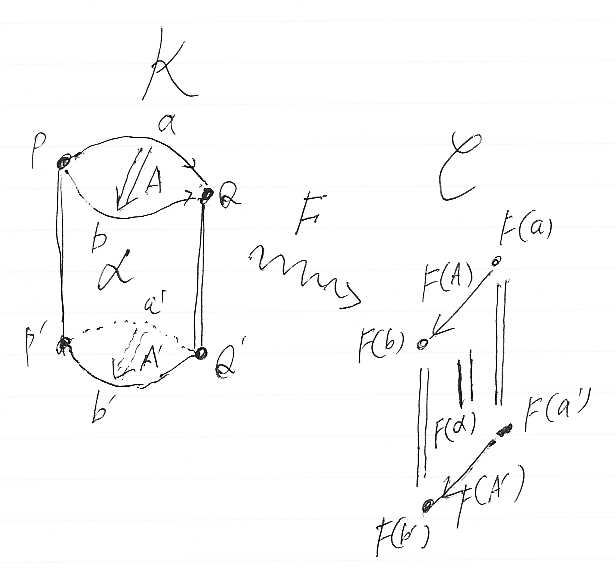 K
a
P
A
Q
b
α
a'
P'
A'
Q'
b'
F
C
F(a)
F(A)
F(b)
F(α)
F(a')
F(A')
F(b')